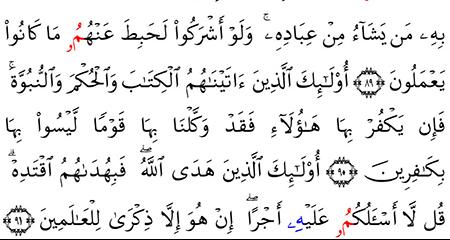 بِهِۦ مَن يَشَآءُ مِنْ عِبَادِهِۦۚ وَلَوْ أَشْرَكُوا۟ لَحَبِطَ عَنْهُمُۥ مَا كَانُوا۟
يَعْمَلُونَ ٨٩ أُو۟لَـٰٓئِكَ ٱلَّذِينَ ءَاتَيْنَـٰهُمُ ٱلْكِتَـٰبَ وَٱلْحُكْمَ وَٱلنُّبُوَّةَۚ
فَإِن يَكْفُرْ بِهَا هَـٰٓؤُلَآءِ فَقَدْ وَكَّلْنَا بِهَا قَوْمًا لَّيْسُوا۟ بِهَا
بِكَـٰفِرِينَ ٩٠ أُو۟لَـٰٓئِكَ ٱلَّذِينَ هَدَى ٱللَّهُۖ فَبِهُدَىٰهُمُ ٱقْتَدِهْۗ
قُل لَّآ أَسْـَٔلُكُمُۥ عَلَيْهِۦ أَجْرًاۖ إِنْ هُوَ إِلَّا ذِكْرَىٰ لِلْعَـٰلَمِينَ ٩١